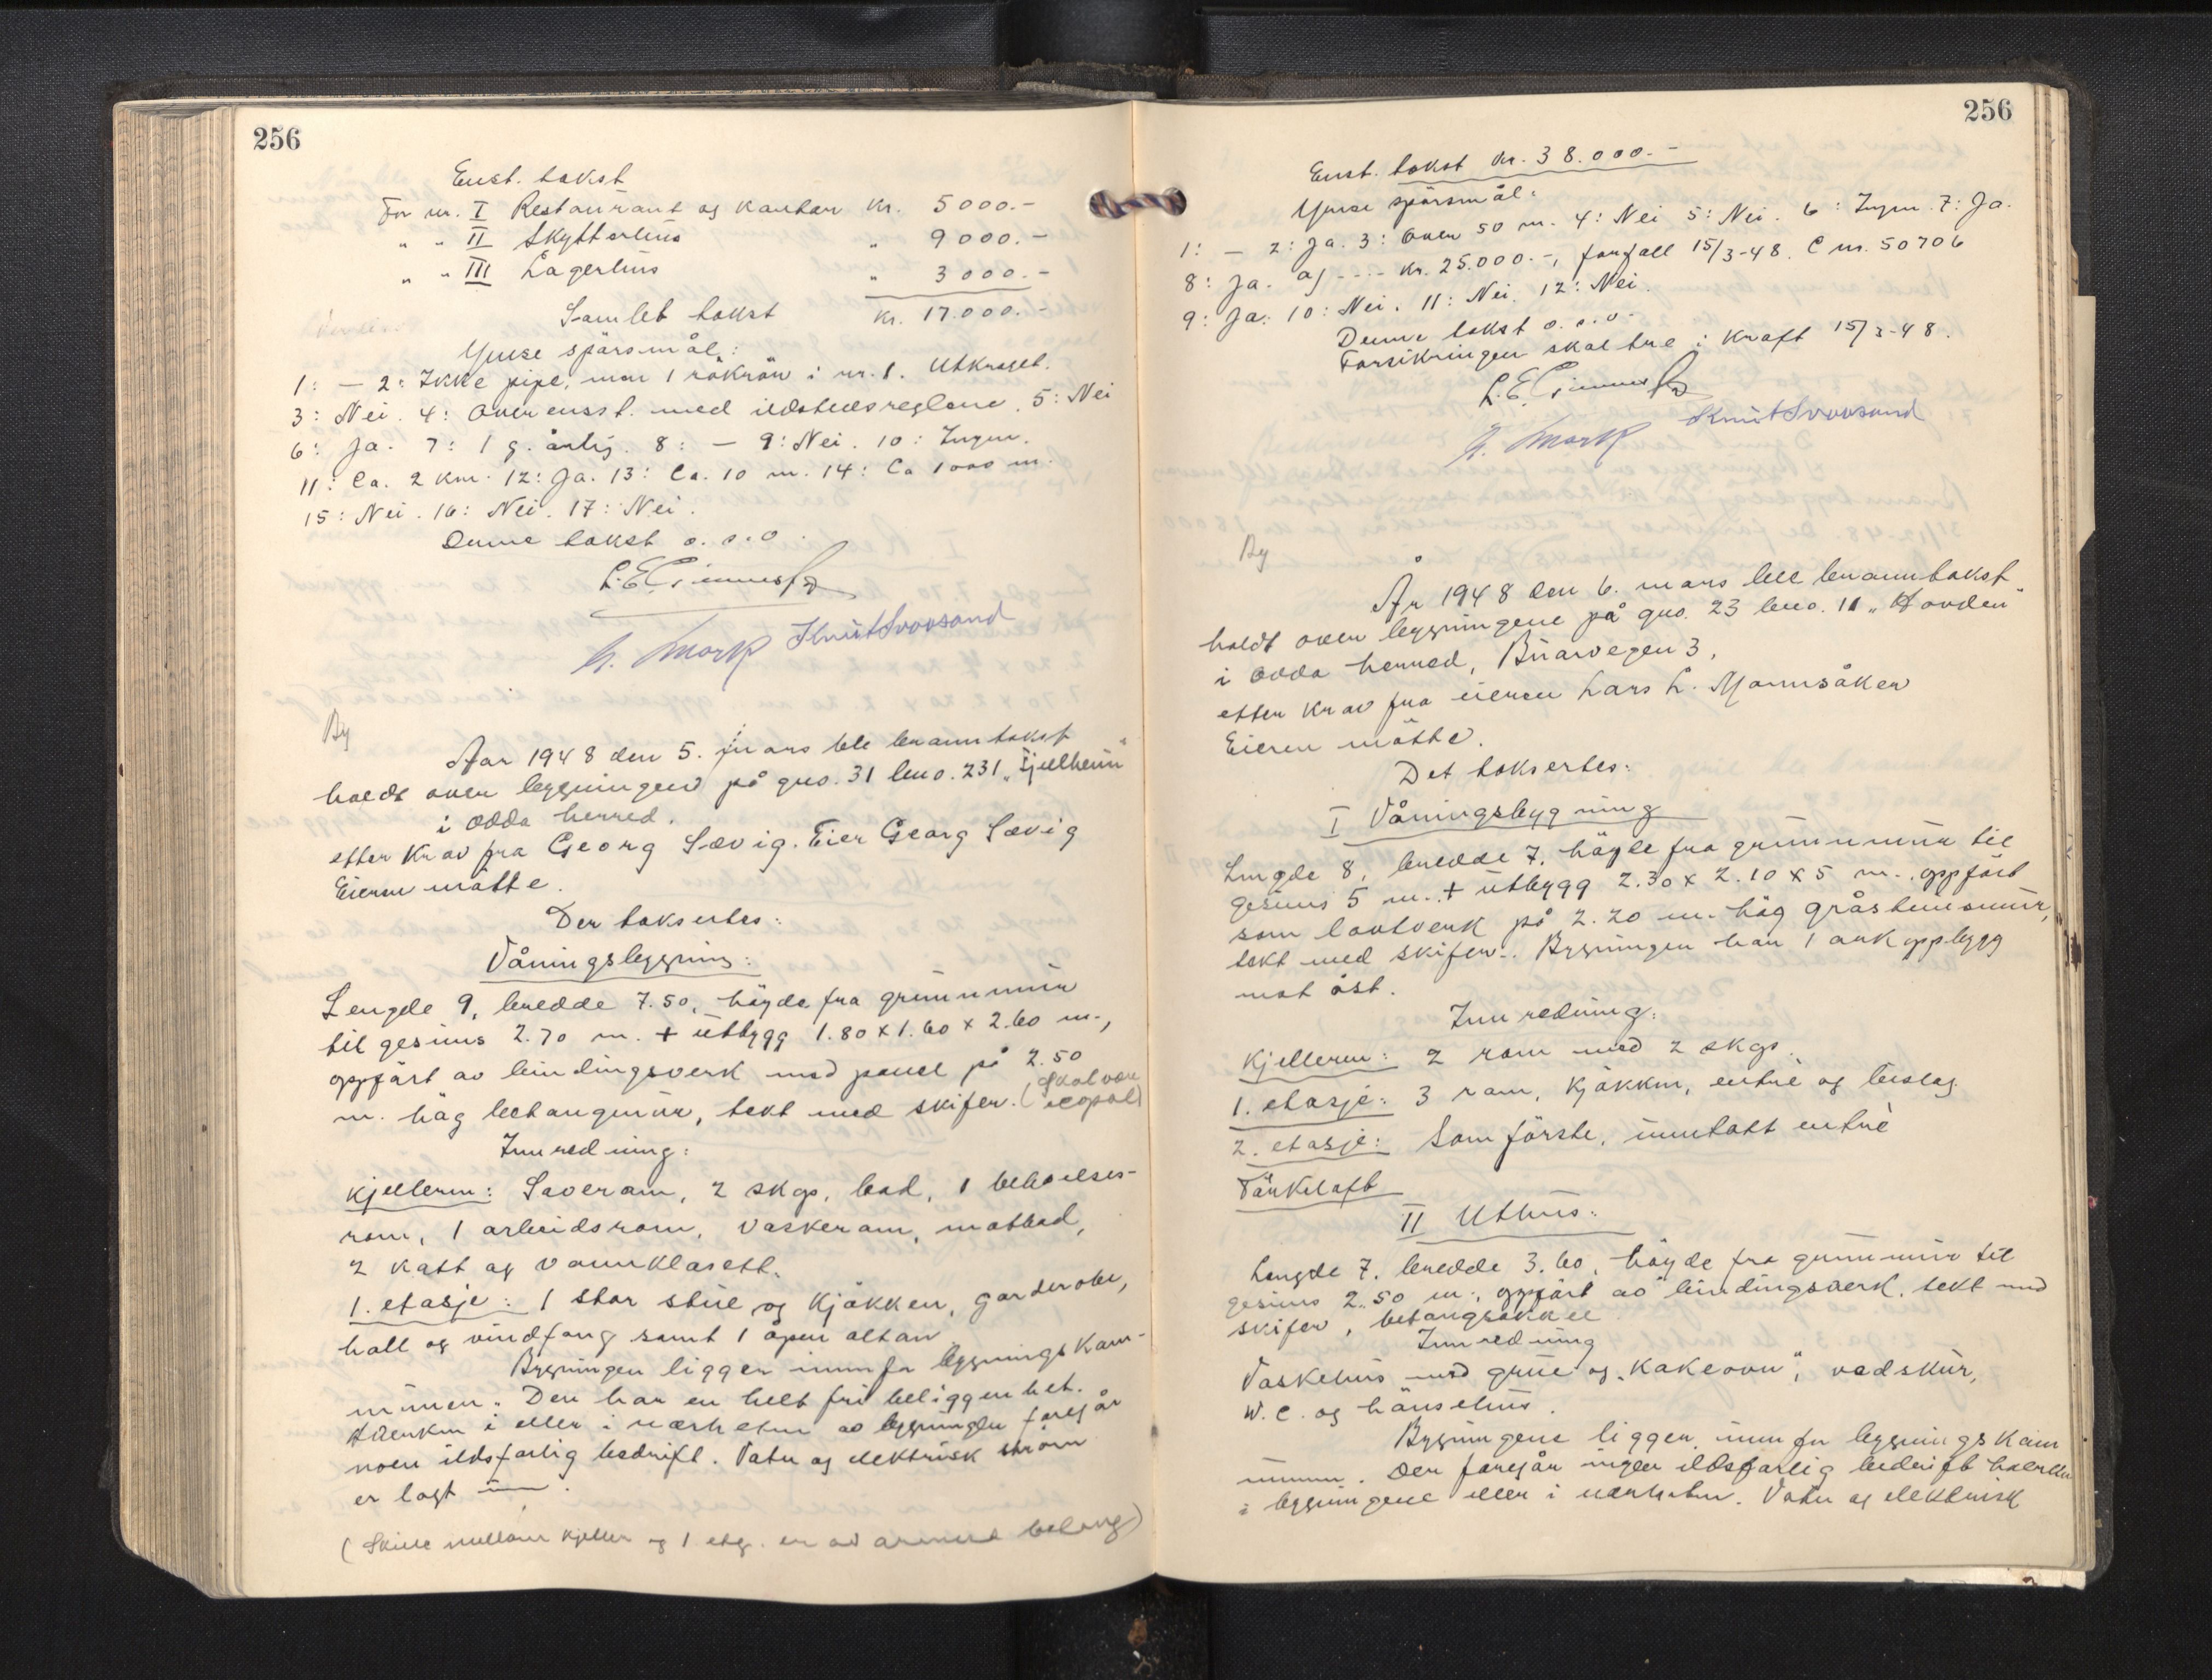 256
Enst. takst
For nr. I Restaurant og kantor kr. 5000.-
" " II Skytterhus " 9000.-
" " III Lagerhus " 3000.-
Samlet takst kr. 17.000.-
Ymse spörsmål:
1: – 2: Ikke pipe, men 1 rökrör i nr. 1. Utkraget.
3: Nei. 4: Overensst. med ildstedsreglene. 5: Nei
6: Ja. 7: 1 g. årlig. 8: – 9: Nei. 10: Ingen.
11: Ca. 2 km. 12: Ja. 13: Ca. 10 m. 14: Ca 1000 m.
15: Nei. 16: Nei. 17: Nei.
Denne takst o.s.v.
By
Aar 1948 den 5. mars ble branntakst
holdt over bygningen på gno. 31 bno. 231 "Fjellheim"
i Odda herred.
etter krav fra Georg Sævig. Eier Georg Sævig
Eieren måtte.
Der taksertes:
Våningsbygning:
Lengde 9, bredde 7.50, höyde fra grunnmur
til gesims 2.70 m. + utbygg 1.80 x 1.60 x 2.60 m.,
oppfört av bindingsverk med panel på 2.50
m. häg betongmur, tekt med skifer. (skal være icopal)
Innredning:
Kjelleren: Soverom, 2 skgs, bad, 1 behoelses-
rom, 1 arbeidsrom, vaskerom, matbod,
2 kott og vannklosett.
1. etasje: 1 stor stue og kjökken, garderobe,
hall og vindfang samt 1 åpen altan
Bygningen ligger innenfor bygningskom-
munen. Den har en helt fri beliggenhet.
Hverken i eller i nærheten av bygningen foregår
noen ildsfarlig bedrift. Vatn og elektrisk ström
er lagt inn.
(Skille mellom kjeller og 1 etg. er av armert betong)
256
Enst. takst kr. 38.000.-
Ymse spörsmål:
1: – 2: Ja. 3: Over 50 m. 4: Nei 5: Nei. 6: Ingen. 7: Ja.
8: Ja. a) ---- kr. 25.000.-, forfall 15/3-48. C nr. 50706
9: Ja. 10: Nei. 11: Nei. 12: Nei.
Denne takst o.s.v.
Forsikringen skal tre i kraft 15/3-48.
By
År 1948 den 6. mars ble branntakst
holdt over bygningene på gno. 23 bno. 11 "Hovden"
i Odda herred, Buarvegen 3,
etter krav fra eieren Lars L. Mannsåker
Eieren måtte.
Det taksertes:
I Våningsbygning
Lengde 8, bredde 7, höyde fra grunnmur til
gesims 5 m. + utbygg 2.30 x 2.10 x 5 m., oppfört
som laftverk på 2.20 m. häg gråsteinsmur,
tekt med skifer. Bygningen har 1 ark oppbygg
mot öst.
Innredning:
Kjelleren: 2 rom med 2 skgs.
1. etasje: 3 rom, kjökken, entré og bislag
2. etasje: Som förste, inntatt entré
Törkeloft
II Uthus:
Lengde 7, bredde 3.60, höyde fra grunnmur til
gesims 2.50 m., oppfört av bindingsverk, tekt med
skifer, betongsokkel
Innredning
Vaskehus med grue og "kakeovn", vedskur,
W.C. og hönsehus.
Bygningene ligger innenfor bygningskom
munen. Der foregår ingen ildsfarlig bedrift hverken
i bygningene eller i nærheten. Vatn og elektrisk